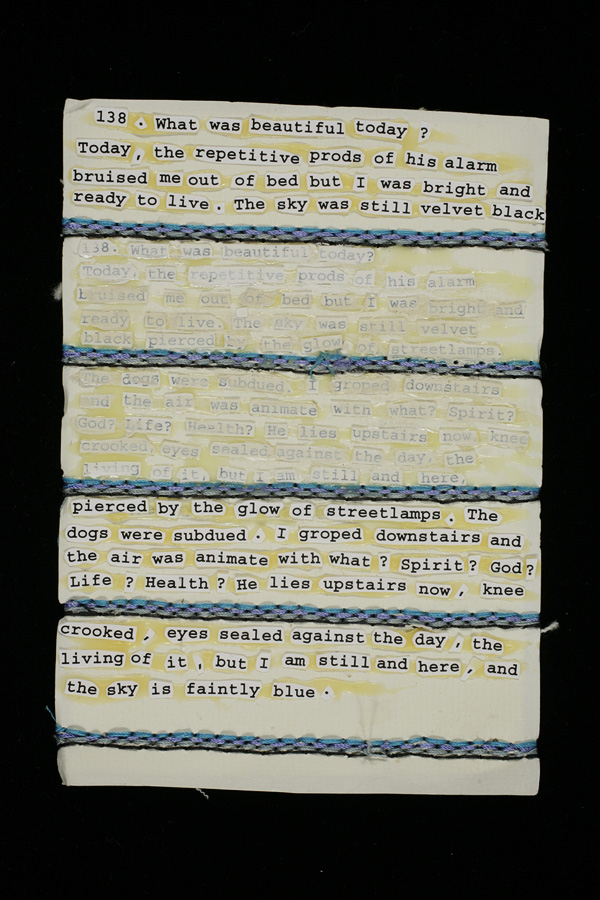 138. What was beautiful today?
Today, the repetitive prods of his alarm
bruised me out of bed but I was bright and
ready to live. The sky was still velvet black
138. What was beautiful today?
Today, the repetitive prods of his alarm
bruised me out of bed but I was bright and
ready to live. The sky was still velvet
black pierced by the glow of streetlamps.
The dogs were subdued. I groped downstairs
and the air was animate with what? Spirit?
God? Life? Health? He lies upstairs now, knee
crooked, eyes sealed against the day, the
living of it, but I am still and here,
pierced by the glow of streetlamps. The
dogs were subdued. I groped downstairs and
the air was animate with what? Spirit? God?
Life? Health? He lies upstairs now, knee
crooked, eyes sealed against the day, the
living of it, but I am still and here, and
the sky is faintly blue.